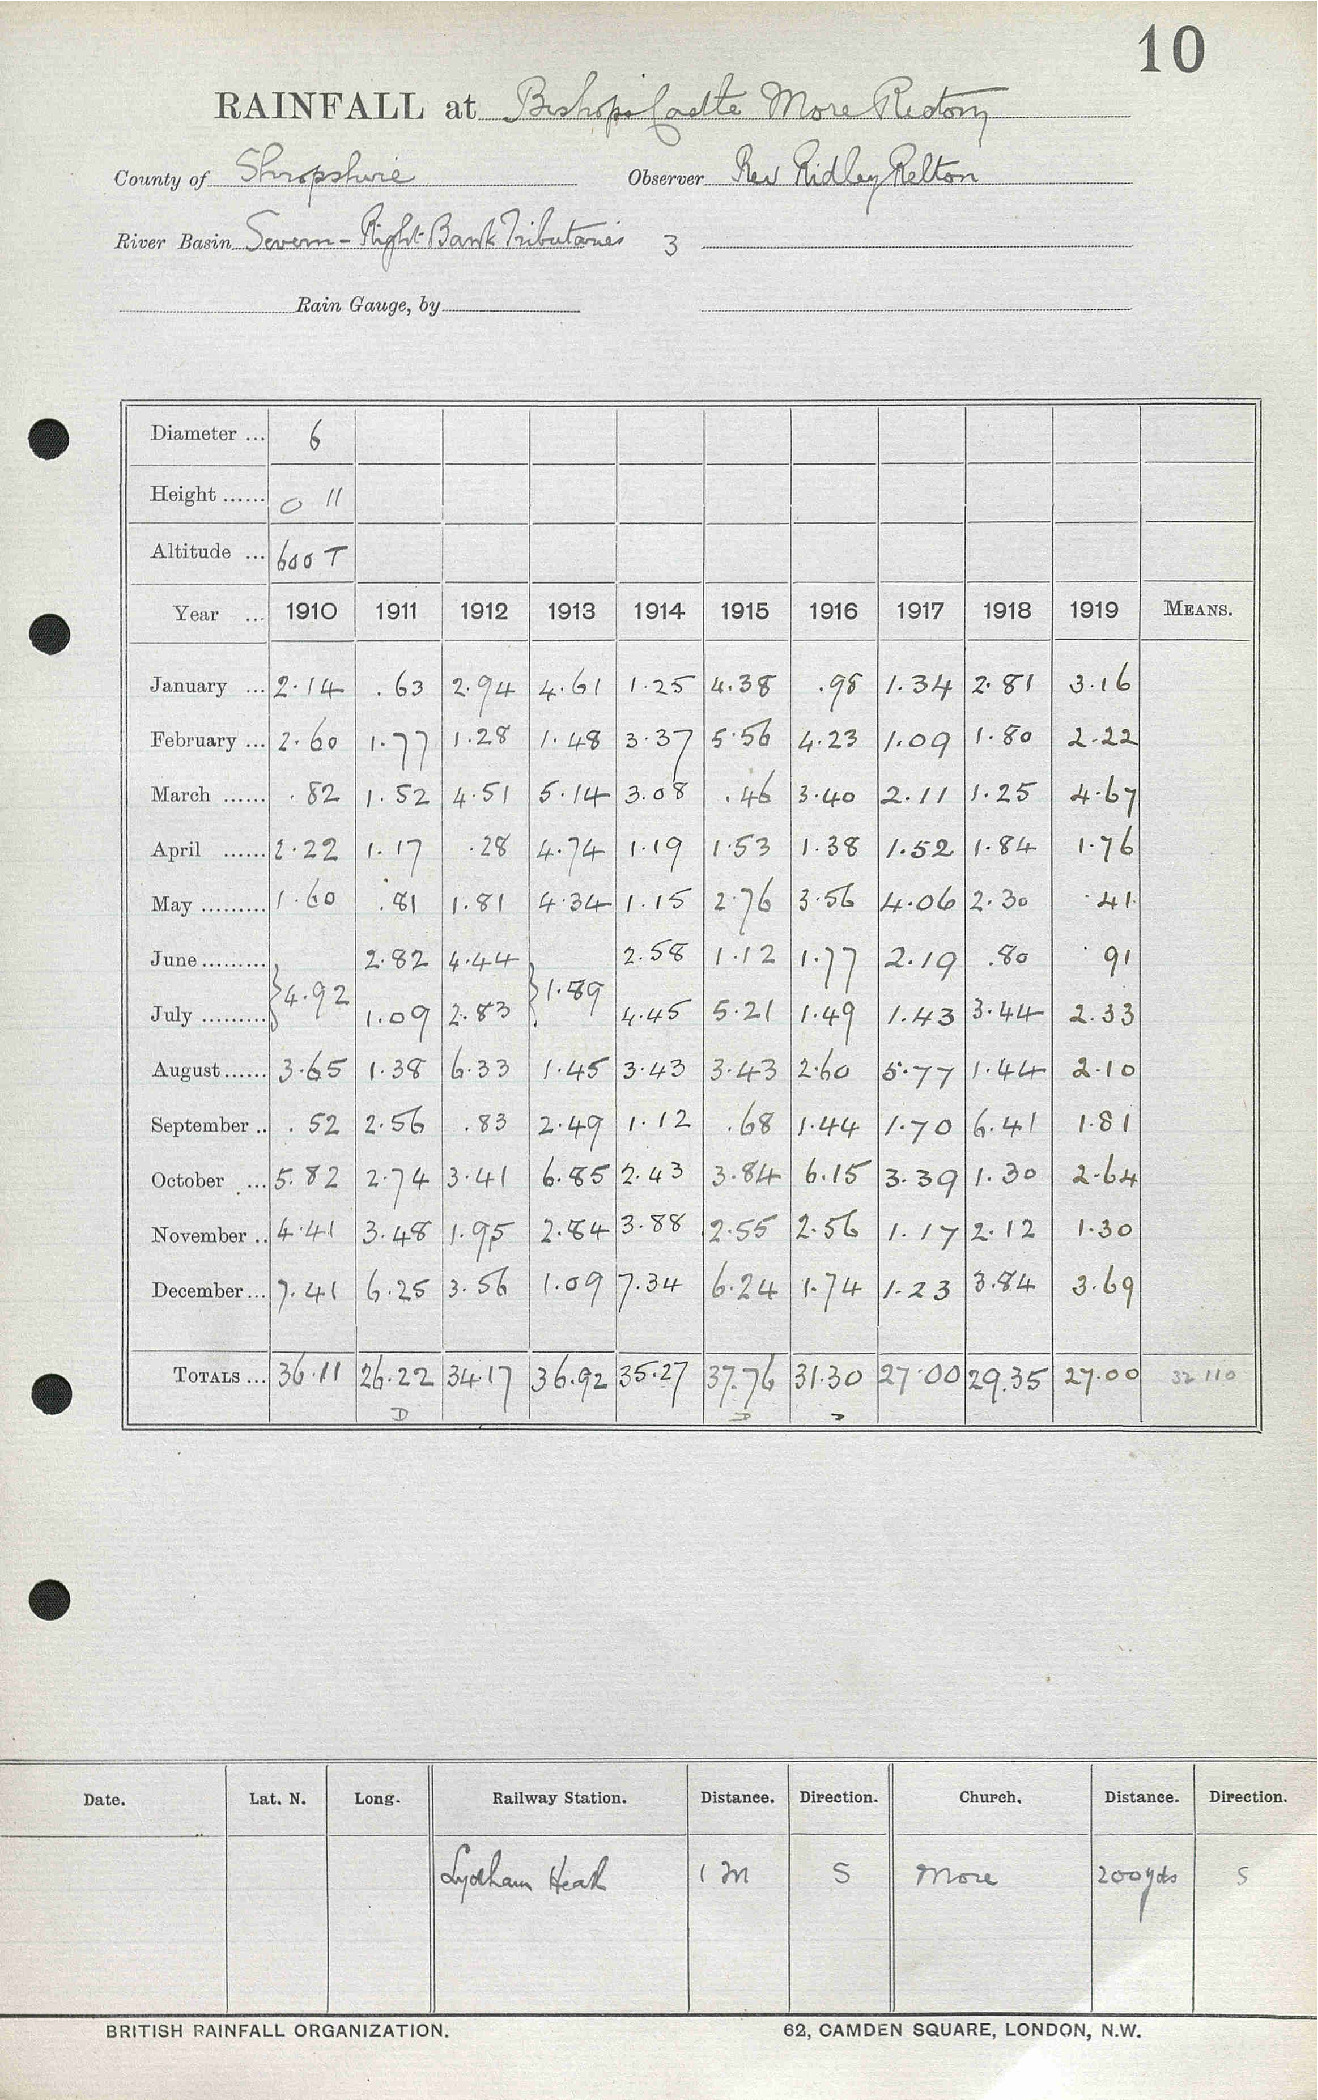 10
RAINFALL at Bishops Castle More Rectory
County of Shropshire Observer Rev Ridley Relton
River Basin Severn - Right Bank Tributaries 3
Rain Gauge, by
Diameter ... 6
Height ...... 0 11
Altitude ... 600 T
Year ... 1910 1911 1912 1913 1914 1915 1916 1917 1918 1919 MEANS.
January ... 2.14 .63 2.94 4.61 1.25 4.38 .98 1.34 2.81 3.16
February ... 2.60 1.77 1.28 1.48 3.37 5.56 4.23 1.09 1.80 2.22
March ...... .82 1.52 4.51 5.14 3.08 .46 3.40 2.11 1.25 4.67
April ...... 2.22 1.17 .28 4.74 1.19 1.53 1.38 1.52 1.84 1.76
May ......... 1.60 .81 1.81 4.34 1.15 2.76 3.56 4.06 2.30 .41
June ......... 2.82 4.44 2.58 1.12 1.77 2.19 .80 .91
} 4.92 } 1.89
July ......... 1.09 2.83 4.45 5.21 1.49 1.43 3.44 2.33
August ...... 3.65 1.38 6.33 1.45 3.43 3.43 2.60 5.77 1.44 2.10
September .. .52 2.56 .83 2.49 1.12 .68 1.44 1.70 6.41 1.81
October ... 5.82 2.74 3.41 6.85 2.43 3.84 6.15 3.39 1.30 2.64
November .. 4.41 3.48 1.95 2.84 3.88 2.55 2.56 1.17 2.12 1.30
December ... 7.41 6.25 3.56 1.09 7.34 6.24 1.74 1.23 3.84 3.69
TOTALS ... 36.11 26.22 34.17 36.92 35.27 37.76 31.30 27.00 29.35 27.00 32 110
D D D
Date. Lat. N. Long. Railway Station. Distance. Direction. Church. Distance. Direction.
Lydham Heath 1 M S More 200 yds S
BRITISH RAINFALL ORGANIZATION. 62, CAMDEN SQUARE, LONDON, N.W.